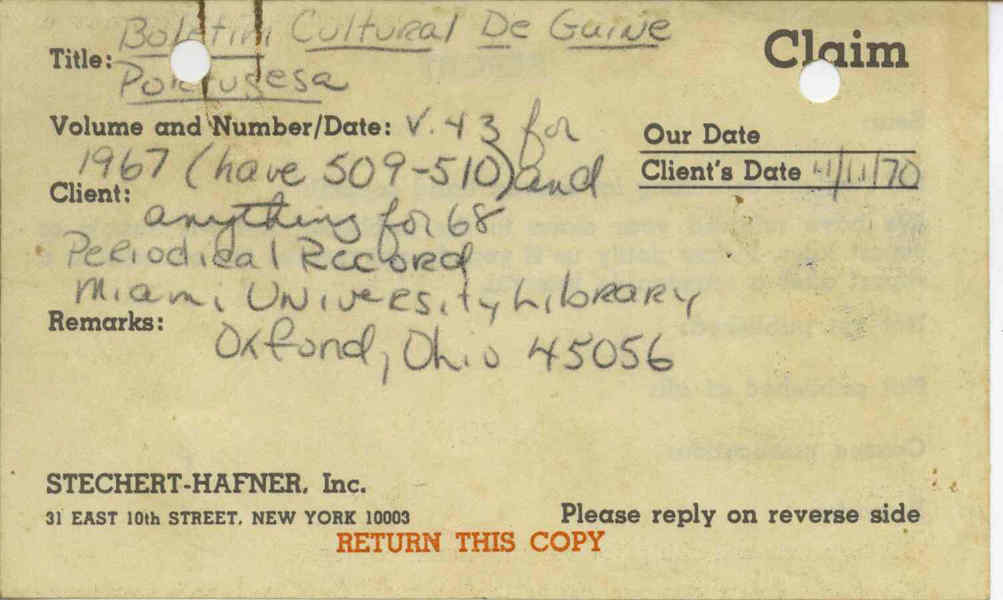 Title: Boletini Cultural De Guine
Portugesa
Claim
Volume and Number/Date: V. 43 for
1967 (have 509-510) and
Our Date
Client's Date 11/11/70
Client:
anything for 68
Periodical Record
Miami University Library
Remarks:
Oxford, Ohio 45056
STECHERT-HAFNER, Inc.
31 EAST 10th STREET, NEW YORK 10003
Please reply on reverse side
RETURN THIS COPY